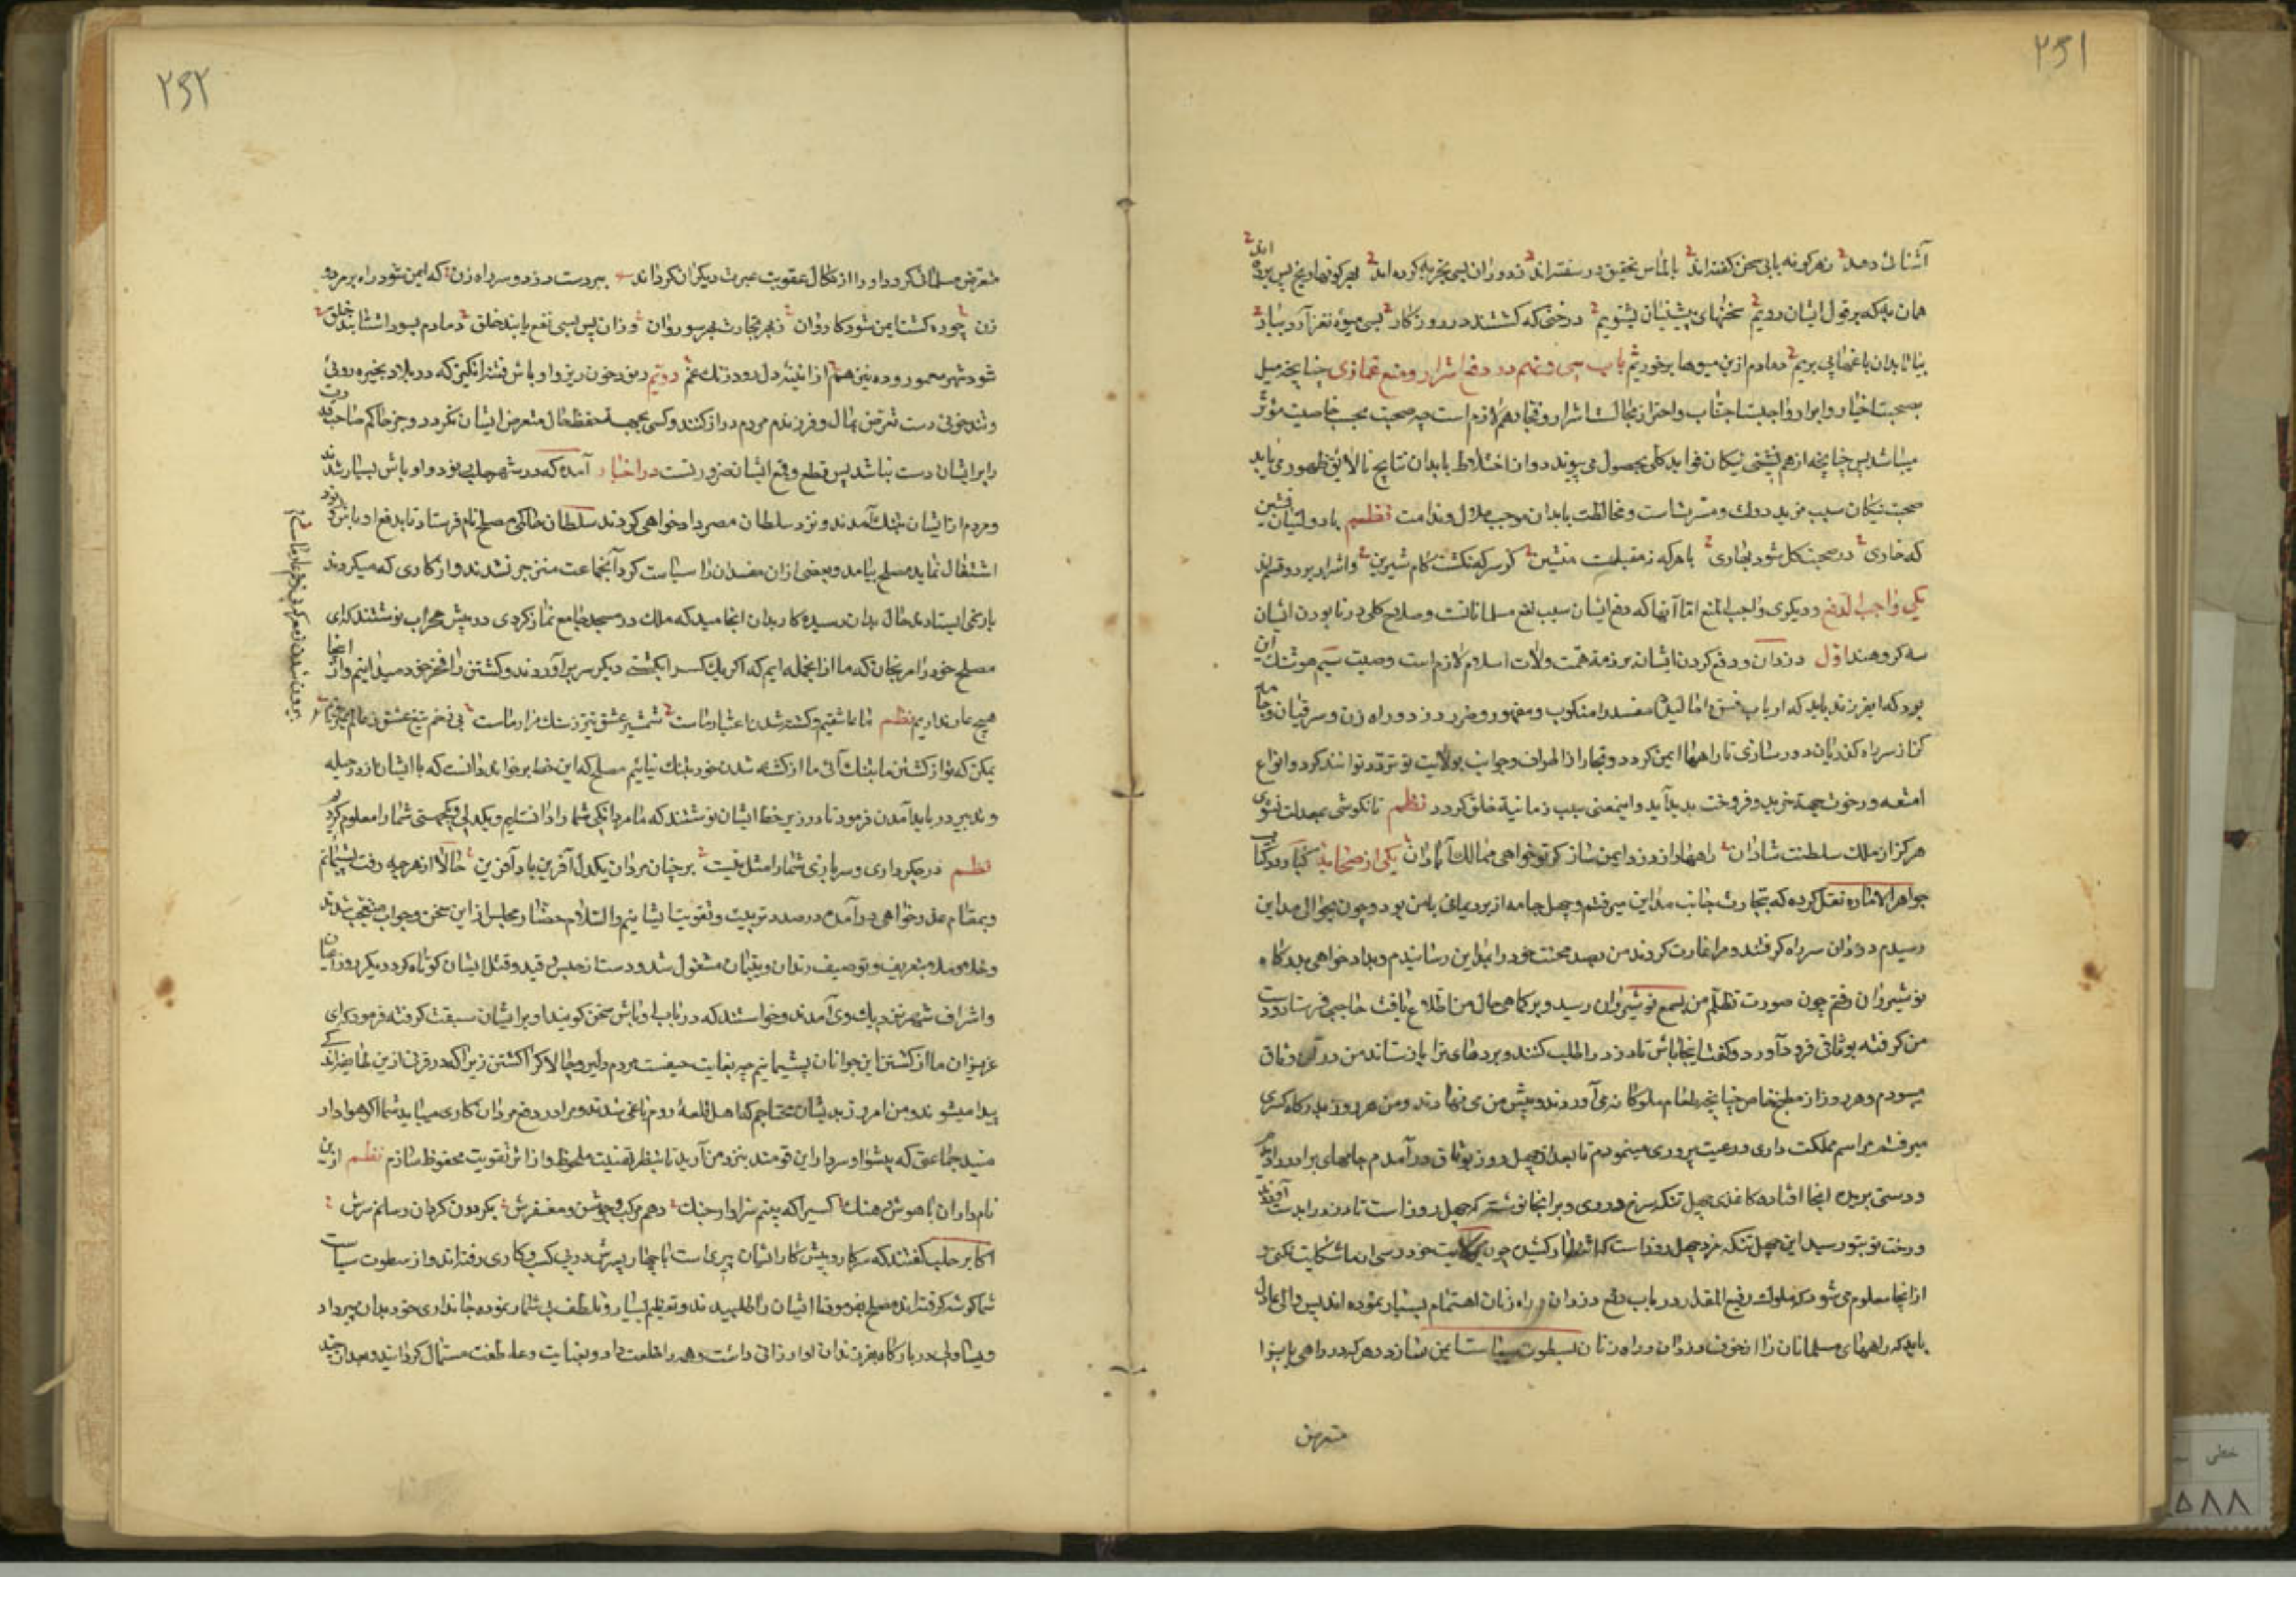 ۲۵۱
آشنائی دهد ز هر گونه یابی سخن گفته‌اند بالماس تحقیق در سفته‌اند در دوران بسی تجربه کرده‌اند بهر گونه تاریخ پس برده‌اند
همان به که بر قول ایشان رویم سخنهای پیشینیان بشنویم درختی که کشتند در روزگار بسی میوه نغز آرد ببار
بیا تا بدان باغها پی بریم دمادم ازین میوها برخوریم باب سی و نهم در دفع اشرار و منع غمازی چنانچه میل
بصحبت اخیار و ابرار واجبست اجتناب و احتراز مجالست اشرار و فجار هم لازم است چه صحبت بحسب خاصیت مؤثر
میباشد پس چنانچه از هم نشینی نیکان فواید کلی بحصول می پیوندد و از اختلاط با بدان نتایج نالایق ظهور می یابد
صحبت نیکان سبب مزید دولت و مسرتست و مخالطت با بدان موجب ملال و ندامت نظم با دولتیان نشین
که خاری در صحبت گل شود بهاری با هر که نه مقبلست منشین کز سرکه نگشت کام شیرین و اشرار بر دو قسم‌اند
یکی واجب الدفع و دیگری واجب المنع اما آنها که دفع ایشان سبب نفع مسلمانانست و صلاح کلی در نابودن ایشان
سه گروهند اول دزدان و دفع کردن ایشان بر ذمه همت ولات اسلام لازم است وصیت سیم هوشنگ این
بود که ای فرزند باید که ارباب فسق و مفسد را منکوب و مقهور و دزد و راه زن و سرقیان و جامه
کن از سر راه گذریان دور سازی تا راهها ایمن گردد و تجار از اطراف و جوانب بولایت تو تردد توانند کرد و انواع
امتعه و رخوت جهة خرید و فروخت پدید آید و اینمعنی سبب زمانیة خلق گردد نظم تا نکوشی بمعدلت نشوی
هرگز از ملک سلطنت شادان راهها از دزد ایمن ساز گر تو خواهی ممالک آبادان یکی از صحابه کتاب
جواهر الاماره نقل کرده که بتجارت جانب مداین میرفتم و چهل جامه از برد یمانی با من بود و چون بحوالی مداین
رسیدم دزدان سر راه گرفتند و مرا غارت کردند من بصد محنت خود را بمداین رسانیدم و بداد خواهی بدرگاه
نوشیروان رفتم چون صورت تظلم من بسمع نوشیروان رسید و بر کماهی حال من اطلاع یافت حاجبی فرستاد و دست
من گرفته بوثاقی فرود آورد و گفت اینجا باش تا دزد را طلب کنند و بردهای ترا باز ستانند من در آن وثاق
میبودم و هر روز از مطبخ خاص چنانچه طعام ملوکانه می آوردند و پیش من می نهادند و من هر روز بدرگاه کسری
میرفتم مراسم مملکت داری و رعیت پروری مینمودم تا بعد از چهل روز بوثاق در آمدم جامهای برد را دیدم
و دستی بریده آنجا افتاده کاغذی چهل تنگه سرخ در وی و بر آنجا نوشته که چهل روز است تا دزد را بدست آورده‌اند
و رخت تو بتو رسید این چهل تنگه مزد چهل روز است که انتظار کشیدی چون بولایت خود رسی از ما شکایت نکنی و
از آنجا معلوم می شود که ملوک رفیع المقدار در باب دفع دزدان و راه زنان اهتمام بسیار نموده‌اند پس والی عادل
باید که راههای مسلمانان را از خوف دزدان و راه زنان بسطوت سیاست ایمن سازد و هر که در راهی یا بیراه
متعرض
۲۵۲
متعرض مسلمانی گردد او را از نکال عقوبت عبرت دیگران گرداند ببر دست دزد و سر راه زن که ایمن شود راه بر مرد و
زن چو ره گشت ایمن شود کاروان ز بهر تجارت بهر سو روان وزان پس بسی نفع یابند خلق دمادم بسود اشتابند خلق
شود شهر معمور و ده نیز هم از آئینه دل رود زنگ غم دویم رند خون ریز و اوباش فتنه انگیز که در بلاد بخیره روئی
و تندخوئی دست تعرض بمال و فرزند مردم دراز کنند و کسی بجهة حفظ حال متعرض ایشان نگردد و جز حاکم صاحب قدرت
را بر ایشان دست نباشد پس قطع و قمع ایشان ضروریست در اخبار آمده که در شهر حلب رنود و اوباش بسیار شدند
و مردم از ایشان بتنگ آمدند و نزد سلطان مصر داد خواهی کردند سلطان حاکمی مصلح نام فرستاد تا بدفع اوباش و رنود
اشتغال نماید مصلح بیامد و بعضی از آن مفسدان را سیاست کرد آنجماعت منزجر نشدند و از کاری که میکردند
باز نمی ایستادند حال بدان رسید و کار بدان انجامید که ملک در مسجد جامع نماز کردی در پیش محراب نوشتند که ای
مصلح خود را مرنجان که ما از آنجمله ایم که اگر یک کس را بکشی دیگر سر بر آوردند و کشتن را فخر خود میدانیم و از اینجا
هیچ عار نداریم نظم ما عاشقیم و کشته شدن اعتبار ماست شمشیر عشق تیز ز سنگ مزار ماست بی زخم تیغ عشق ز عالم نمیرویم
بیرون شدن ز معرکه بی زخم عار ماست
ممکن که تو از کشتن ما بتنگ آئی ما از کشته شدن خود بتنگ نیائیم مصلح که این خط بر خواند دانست که با ایشان از در حیله
و تدبیر در باید آمدن فرمود تا در زیر خط ایشان نوشتند که ما مردانگی شما را دانستیم و یکدلی و یکجهتی شما را معلوم کردیم
نظم در جگر داری و سربازی شما را مثل نیست بر چنان مردان یکدل آفرین باد آفرین حالا از هر چه رفت پشیمانیم
و بمقام عذر خواهی در آمدیم در صدد تربیت و تقویت ایشانیم والسلام حضار مجلس از این سخن و جواب متعجب شدند
و بتعریف و توصیف رندان و مشغول شد و دست از حبس و قید و قتل ایشان کوتاه کرد دیگر روز اعیان
و اشراف شهر نزدیک وی آمدند و خواستند که در باب اوباش سخن گویند او بر ایشان سبقت گرفته فرمود که ای
عزیزان ما از کشتن این جوانان پشیمانیم چه بغایت حیفست مردم دلیر و چالاک را کشتن زیرا که در قرنی ازین طایفه اندکی
پیدا میشوند و من امروز بدیشان محتاجم که اهل قلعهٔ روم یاغی شدند و مرا در دفع مردان کاری میباید شما اگر هوادار
منید جماعتی که پیشوا و سردار این قومند بنزد من آرید تا بنظر تقویت ملحوظ و از اثر تقویت محفوظ سازم نظم ازین
نامداران با هوش و هنگ کسی را که بینم سزاوار جنگ دهم مرکب و جوشن و مغفرش بگردون گردان رسانم سرش
اکابر حلب گفتند که سرکار و پیش کار ایشان پیری است با چهار پسرش در پی کسب و کاری رفته‌اند و از سطوت سیاست
شما گوشه گرفته‌اند مصلح بفرمود تا ایشان را طلبیدند و تعظیم بسیار و تلطف بی شمار نموده جانداری خود بدان پیر داد
و بساولی دربار گاه بفرزندان او ارزانی داشت و همه را خلعت داد و بعنایت و عاطفت مستمال گردانید و بعد از چند
خطی
۵۸۸